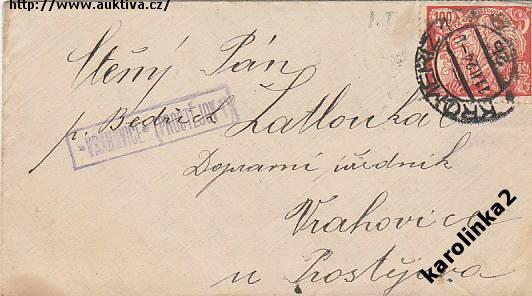 http://www.auktiva.cz/
1.T
100
KROMĚŘÍŽ
Ctěný Pán
p. Bedřich Zatloukal
VRAHOVICE PROSTĚJOV
Dopravní úředník
Vrahovice
u Prostějova
karolinka2